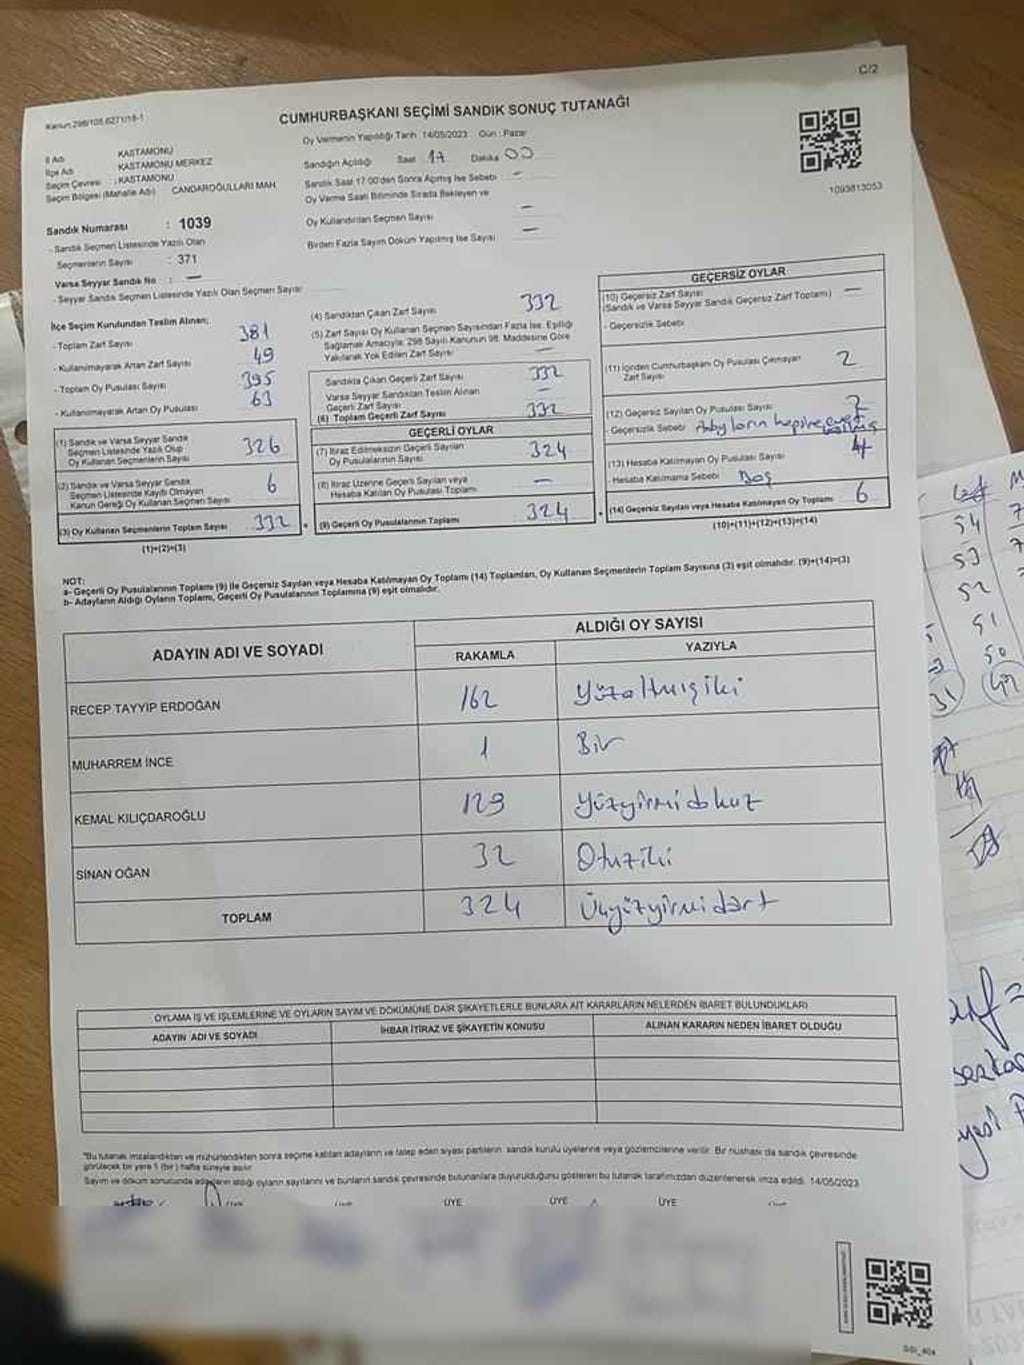 C/2
Kanun:298/105,6271/18-1
CUMHURBAŞKANI SEÇİMİ SANDIK SONUÇ TUTANAĞI
Oy Vermenin Yapıldığı Tarih :14/05/2023 Gün : Pazar
İl Adı : KASTAMONU
İlçe Adı : KASTAMONU MERKEZ
Seçim Çevresi : KASTAMONU
Seçim Bölgesi (Mahalle Adı) : CANDAROĞULLARI MAH.
Sandığın Açıldığı Saat 17 Dakika 00
Sandık Saat 17:00'den Sonra Açılmış İse Sebebi —
Oy Verme Saati Bitiminde Sırada Bekleyen ve
Oy Kullandırılan Seçmen Sayısı —
Birden Fazla Sayım Döküm Yapılmış İse Sayısı —
1093813053
Sandık Numarası : 1039
- Sandık Seçmen Listesinde Yazılı Olan
Seçmenlerin Sayısı : 371
Varsa Seyyar Sandık No : —
- Seyyar Sandık Seçmen Listesinde Yazılı Olan Seçmen Sayısı
İlçe Seçim Kurulundan Teslim Alınan;
- Toplam Zarf Sayısı 381
- Kullanılmayarak Artan Zarf Sayısı 49
- Toplam Oy Pusulası Sayısı 395
- Kullanılmayarak Artan Oy Pusulası 63
(1) Sandık ve Varsa Seyyar Sandık
Seçmen Listesinde Yazılı Olup
Oy Kullanan Seçmenlerin Sayısı 326
(2) Sandık ve Varsa Seyyar Sandık
Seçmen Listesinde Kayıtlı Olmayan
Kanun Gereği Oy Kullanan Seçmen Sayısı 6
(3) Oy Kullanan Seçmenlerin Toplam Sayısı 332
(1)+(2)=(3)
(4) Sandıktan Çıkan Zarf Sayısı 332
(5) Zarf Sayısı Oy Kullanan Seçmen Sayısından Fazla İse, Eşitliği
Sağlamak Amacıyla; 298 Sayılı Kanunun 98. Maddesine Göre
Yakılarak Yok Edilen Zarf Sayısı —
Sandıkta Çıkan Geçerli Zarf Sayısı 332
Varsa Seyyar Sandıktan Teslim Alınan
Geçerli Zarf Sayısı —
(6) Toplam Geçerli Zarf Sayısı 332
GEÇERLİ OYLAR
(7) İtiraz Edilmeksizin Geçerli Sayılan
Oy Pusulalarının Sayısı 324
(8) İtiraz Üzerine Geçerli Sayılan veya
Hesaba Katılan Oy Pusulası Toplamı —
(9) Geçerli Oy Pusulalarının Toplamı 324
GEÇERSİZ OYLAR
(10) Geçersiz Zarf Sayısı
(Sandık ve Varsa Seyyar Sandık Geçersiz Zarf Toplamı) —
- Geçersizlik Sebebi
(11) İçinden Cumhurbaşkanı Oy Pusulası Çıkmayan
Zarf Sayısı 2
(12) Geçersiz Sayılan Oy Pusulası Sayısı
- Geçersizlik Sebebi
(13) Hesaba Katılmayan Oy Pusulası Sayısı 4
- Hesaba Katılmama Sebebi Boş
(14) Geçersiz Sayılan veya Hesaba Katılmayan Oy Toplamı 6
(10)+(11)+(12)+(13)=(14)
NOT:
a- Geçerli Oy Pusulalarının Toplamı (9) ile Geçersiz Sayılan veya Hesaba Katılmayan Oy Toplamı (14) Toplamları, Oy Kullanan Seçmenlerin Toplam Sayısına (3) eşit olmalıdır. (9)+(14)=(3)
b- Adayların Aldığı Oyların Toplamı, Geçerli Oy Pusulalarının Toplamına (9) eşit olmalıdır.
ADAYIN ADI VE SOYADI
ALDIĞI OY SAYISI
RAKAMLA YAZIYLA
RECEP TAYYİP ERDOĞAN 162 Yüzaltmışiki
MUHARREM İNCE 1 Bir
KEMAL KILIÇDAROĞLU 129 Yüzyirmidokuz
SİNAN OĞAN 32 Otuziki
TOPLAM 324 Üçyüzyirmidört
OYLAMA İŞ VE İŞLEMLERİNE VE OYLARIN SAYIM VE DÖKÜMÜNE DAİR ŞİKAYETLERLE BUNLARA AİT KARARLARIN NELERDEN İBARET BULUNDUKLARI
ADAYIN ADI VE SOYADI İHBAR İTİRAZ VE ŞİKAYETİN KONUSU ALINAN KARARIN NEDEN İBARET OLDUĞU
*Bu tutanak imzalandıktan ve mühürlendikten sonra seçime katılan adayların ve talep eden siyasi partilerin sandık kurulu üyelerine veya gözlemcilerine verilir. Bir nüshası da sandık çevresinde
görülecek bir yere 1 (bir) hafta süreyle asılır.
Sayım ve döküm sonucunda adayların aldığı oyların sayılarını ve bunların sandık çevresinde bulunanlara duyurulduğunu gösteren bu tutanak tarafımızdan düzenlenerek imza edildi. 14/05/2023
ÜYE ÜYE ÜYE
54
53
52
51
50